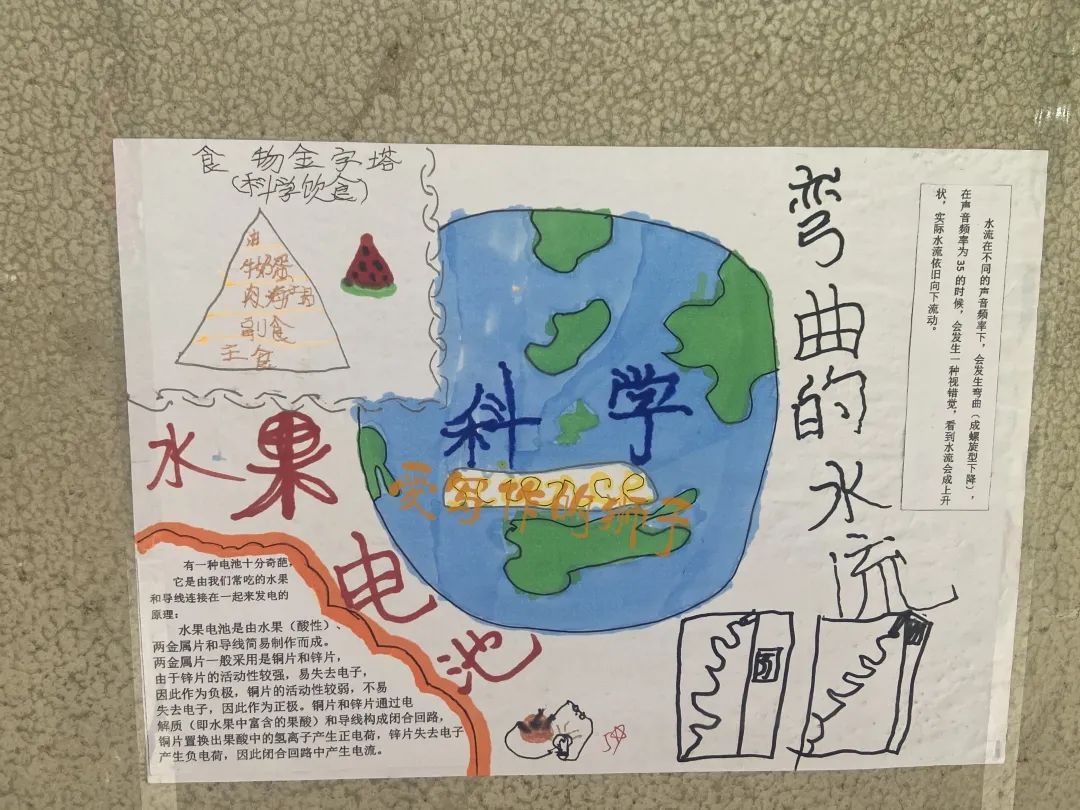 食物金字塔
(科学饮食)
油
牛奶蛋
肉海产品
副食
主食
科学
水果电池
有一种电池十分奇葩,
它是由我们常吃的水果
和导线连接在一起来发电的
原理:
水果电池是由水果(酸性)、
两金属片和导线简易制作而成。
两金属片一般采用是铜片和锌片,
由于锌片的活动性较强,易失去电子,
因此作为负极,铜片的活动性较弱,不易
失去电子,因此作为正极。铜片和锌片通过电
解质(即水果中富含的果酸)和导线构成闭合回路,
铜片置换出果酸中的氢离子产生正电荷,锌片失去电子
产生负电荷,因此闭合回路中产生电流。
弯曲的水流
水流在不同的声音频率下,会发生弯曲(成螺旋型下降),
在声音频率为 35 的时候,会发生一种视错觉,看到水流会成上升
状,实际水流依旧向下流动。